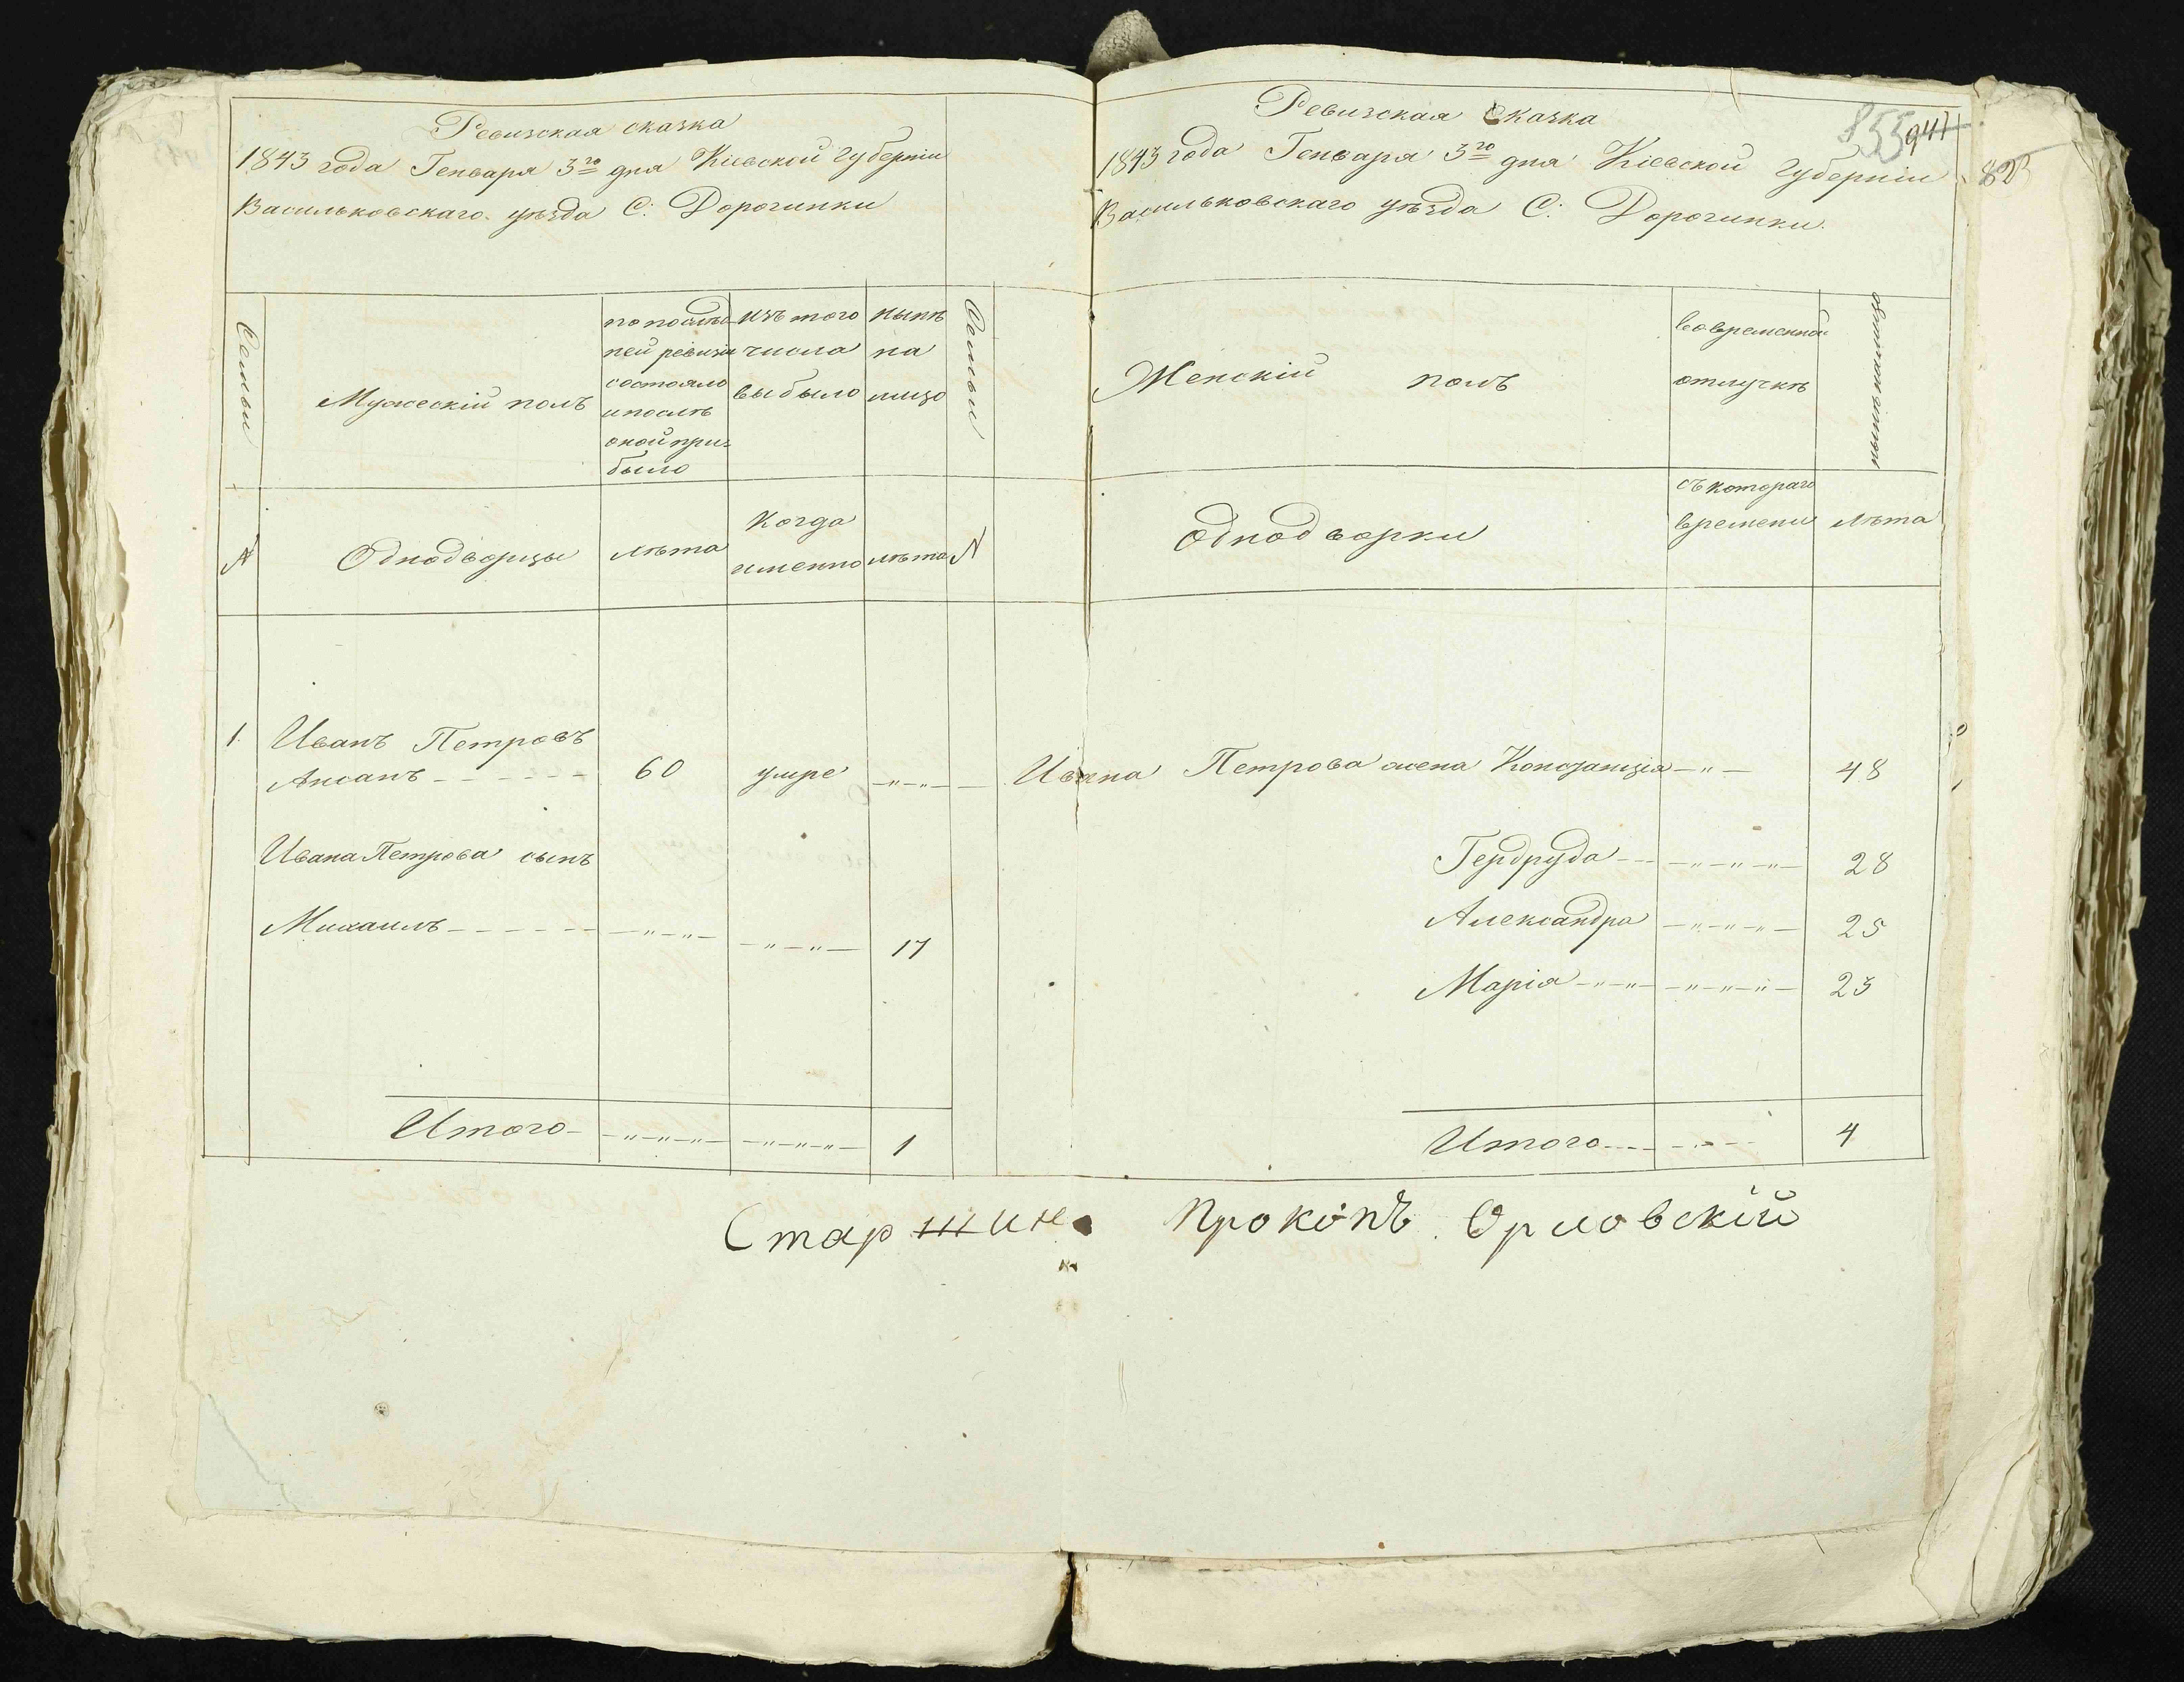 Ревизская сказка
1843 года Генваря 3го дня Кіевской губерніи
Васильковскаго уѣзда С: Дорогинки
Семьи
Мужескій полъ
по послѣд-
ней ревизіи
состояло
и послѣ
оной при-
было
изъ того
числа
выбыло
нынѣ
на
лицо
Семьи
№
Однодворцы
лѣта
Когда
именно
лѣта
№
1.
Иванъ Петровъ
60
умре
Ивана Петрова сынъ
Михаилъ
17
Итого
1
Ревизская Сказка
855 941
1843 года Генваря 3го дня Кіевской губерніи
Васильковскаго уѣзда С: Дорогинки.
Женскій полъ
во временной
отлучкѣ
нынѣ налицо
Однодворки
съ котораго
времени
лѣта
Ивана Петрова жена Констанція
48
Гердруда
28
Александра
25
Марія
23
Итого
4
Старшина Прокопъ Орловскій